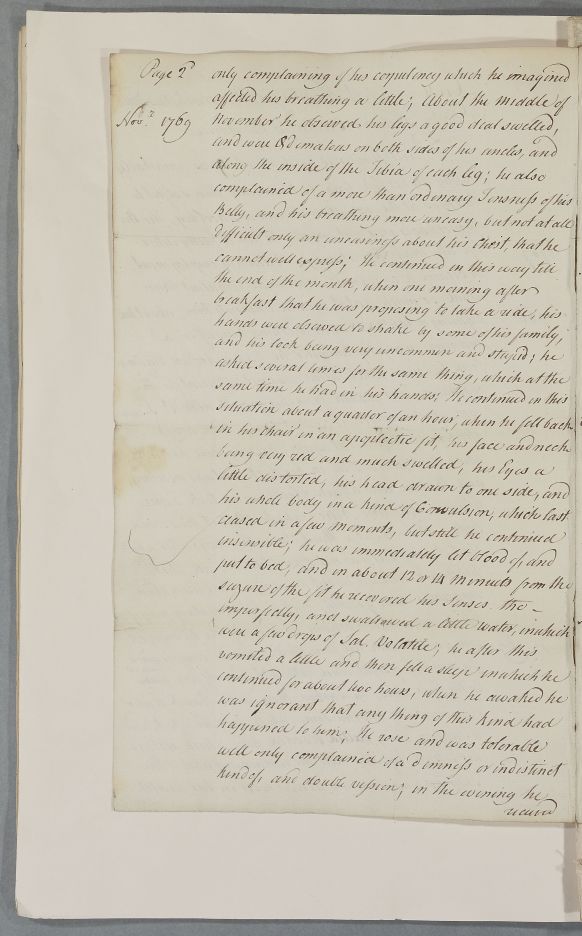 Page 2d
only complaining of his corpulency which he imagined
affected his breathing a little; About the middle of
Novr. 1769
november he observed his legs a good deal swelled,
and were Œdematous on both sides of his ancles, and
along the inside of the Tibia of each leg; he also
complained of a more than ordinary Tensness of his
Belly, and his breathing more uneasy, but not at all
Difficult only an uneasiness about his Chest, that he
cannot well express; He continued in this way till
the end of the month, when one morning after
breakfast that he was proposing to take a ride, his
hands were observed to shake by some of his family,
and his look being very uncommon and stupid; he
asked several times for the same thing, which at the
same time he had in his hands; He continued in this
situation about a quarter of an hour, when he fell back
in his Chair in an apoplectic fit, his face and neck
being very red and much swelled, his Eyes a
little distorted, his head drawn to one side, and
his whole body in a kind of Convulsion, which last
ceased in a few moments, but still he continued
insensible; he was immediately let blood of, and
put to bed, and in about 12 or 14 minuets from the
seizure of the fit he recovered his Senses tho-
imperfectly, and swallowed a little water, in which
were a few drops of Sal. Volatile; he after this
vomited a little and then fell a sleep in which he
continued for about two hours, when he awaked he
was ignorant that any thing of this kind had
happened to him; He rose and was tolerable
well only complained of a dimness or indistinct
kind of, and double vission; in the evening he
received